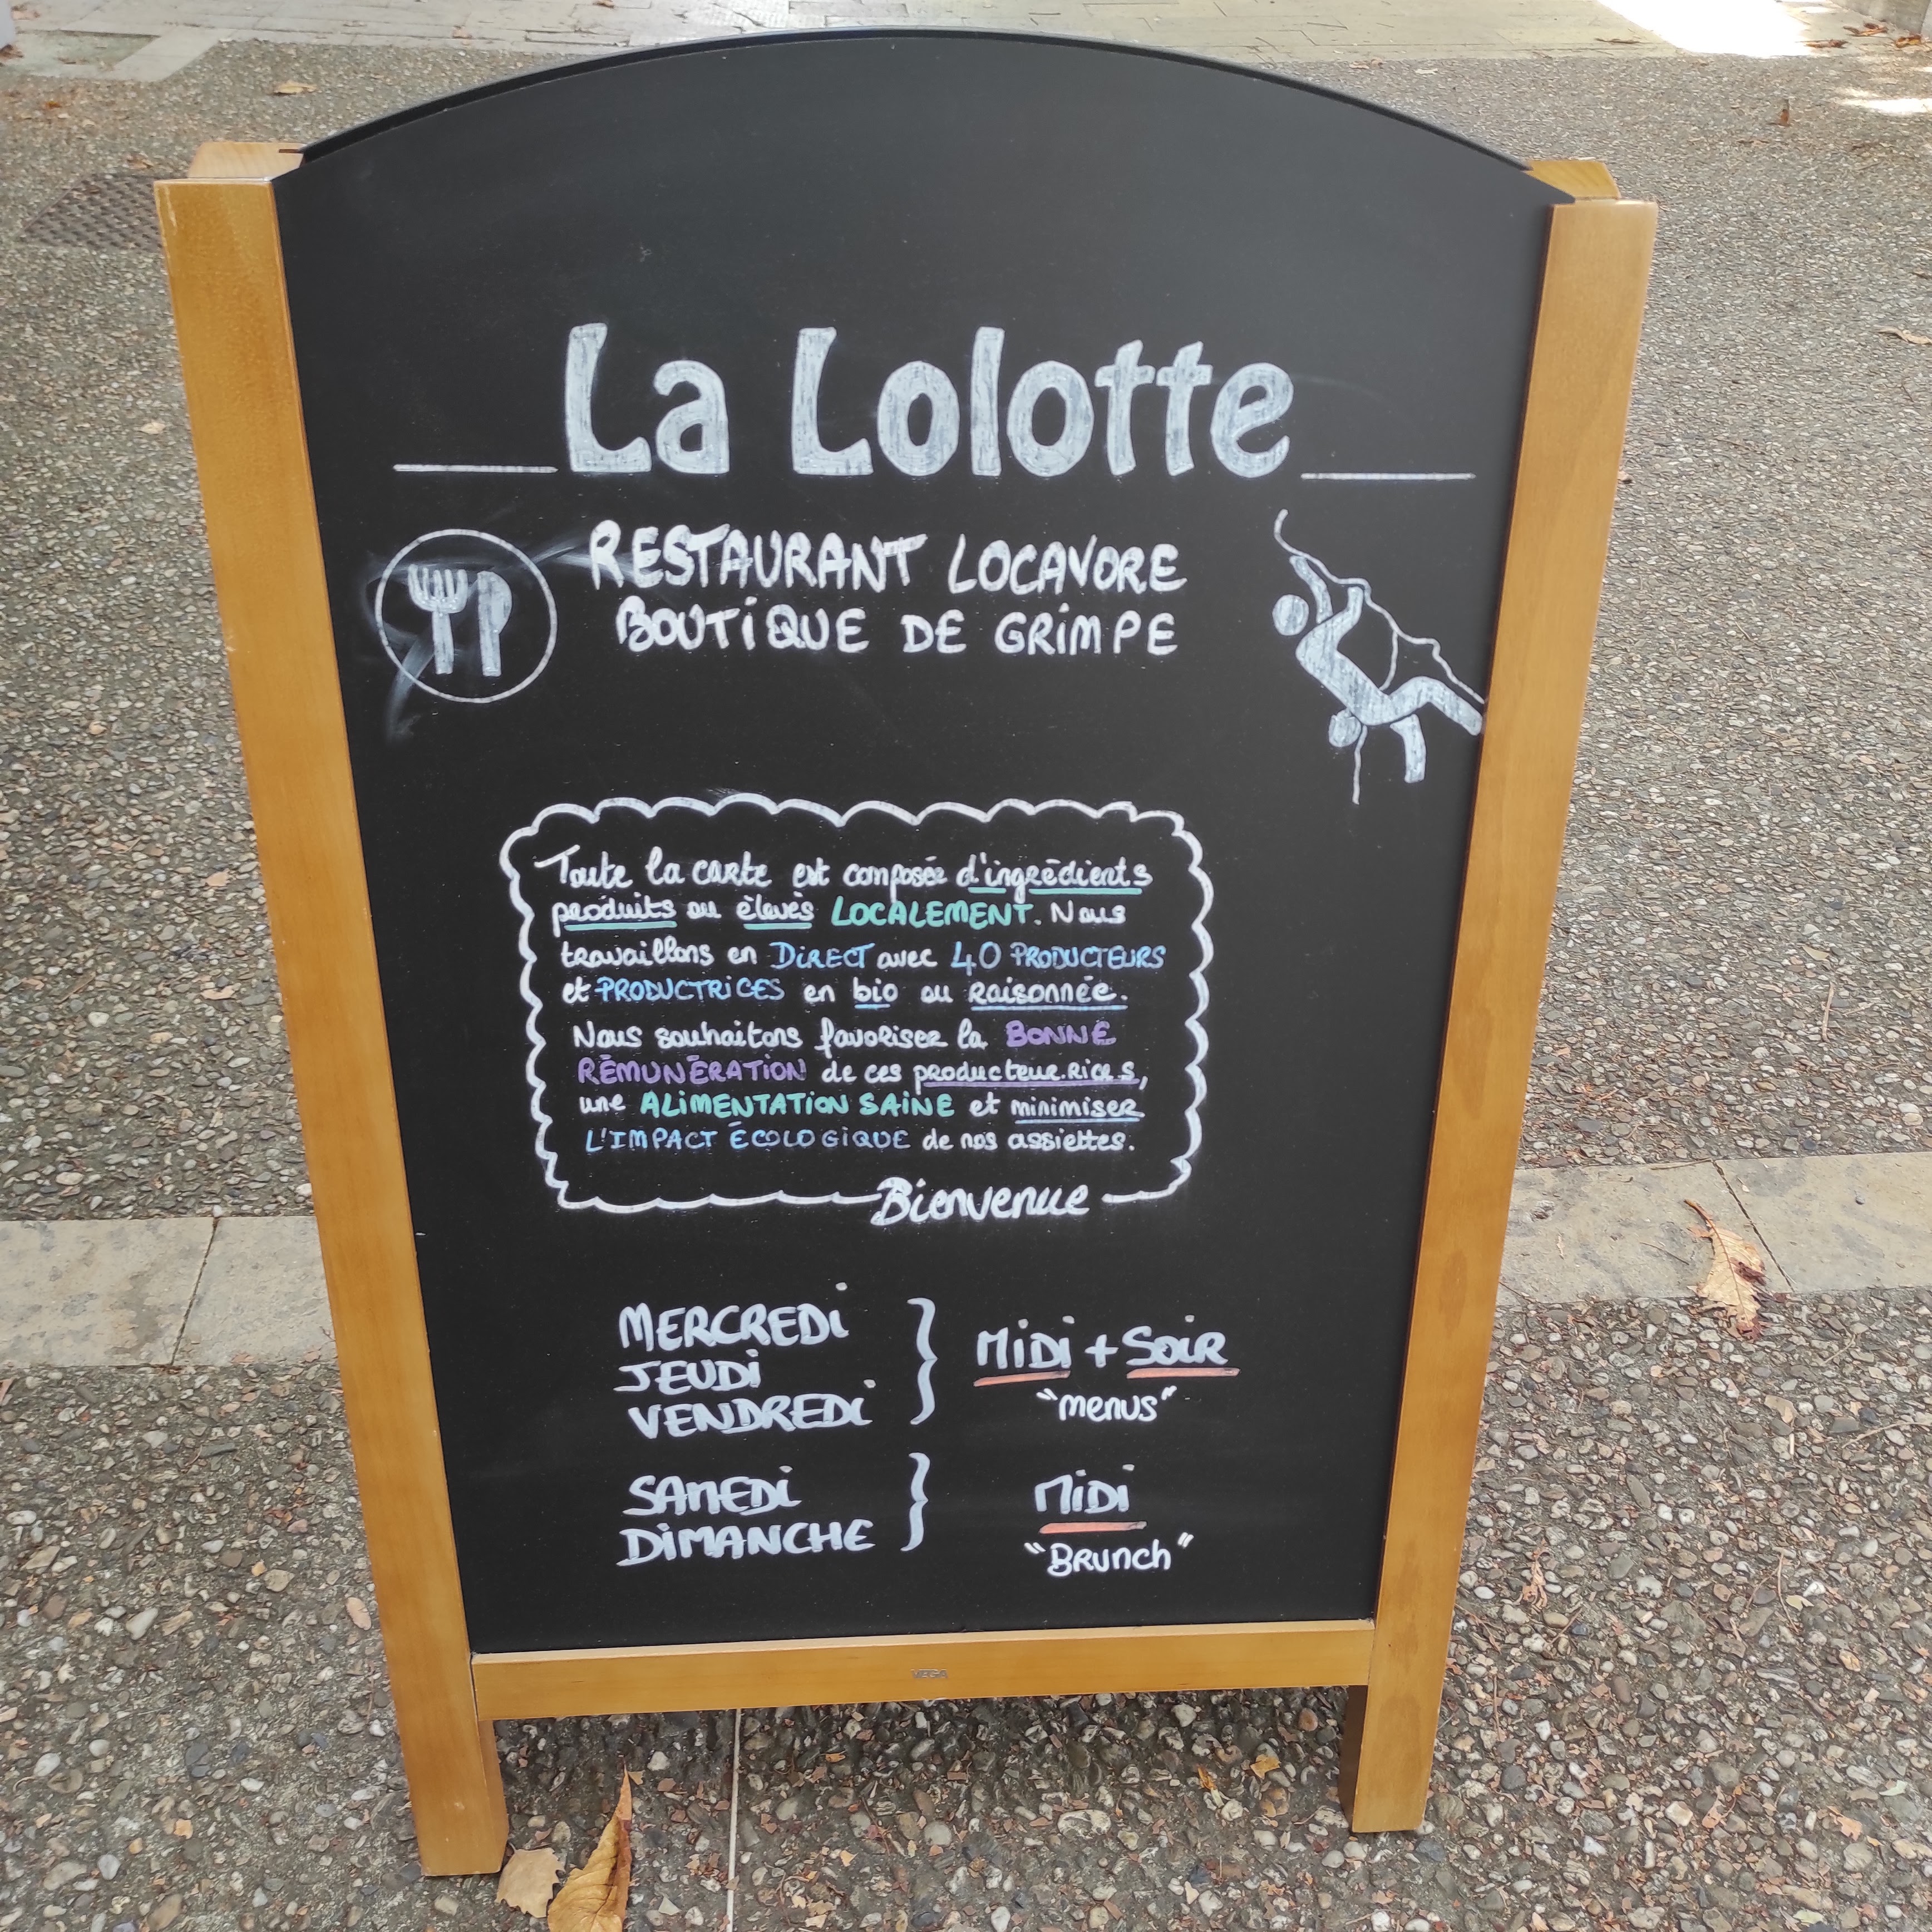 La Lolotte
RESTAURANT LOCAVORE
BOUTIQUE DE GRIMPE
Toute la carte est composée d'ingrédients
produits ou élevés LOCALEMENT. Nous
travaillons en DIRECT avec 40 PRODUCTEURS
et PRODUCTRICES en bio ou raisonnée.
Nous souhaitons favoriser la BONNE
RÉMUNÉRATION de ces producteur.rices,
une ALIMENTATION SAINE et minimiser
L'IMPACT ÉCOLOGIQUE de nos assiettes.
Bienvenue
MERCREDI
JEUDI
VENDREDI
MIDI + SOIR
"menus"
SAMEDI
DIMANCHE
MIDI
"BRUNCH"
VEGA